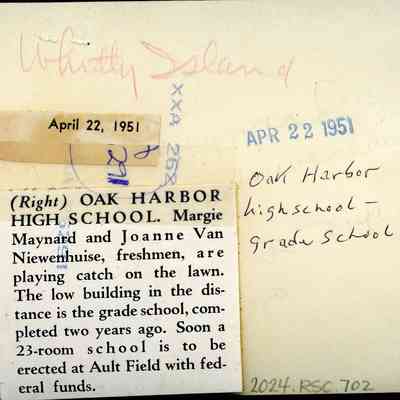 Whitty Island
April 22, 1951
APR 22 1951
XXA 252
(Right) OAK HARBOR
HIGH SCHOOL. Margie
Maynard and Joanne Van
Niewenhuise, freshmen, are
playing catch on the lawn.
The low building in the dis-
tance is the grade school, com-
pleted two years ago. Soon a
23-room school is to be
erected at Ault Field with fed-
eral funds.
Oak Harbor
highschool –
grade school
2024.RSC.702